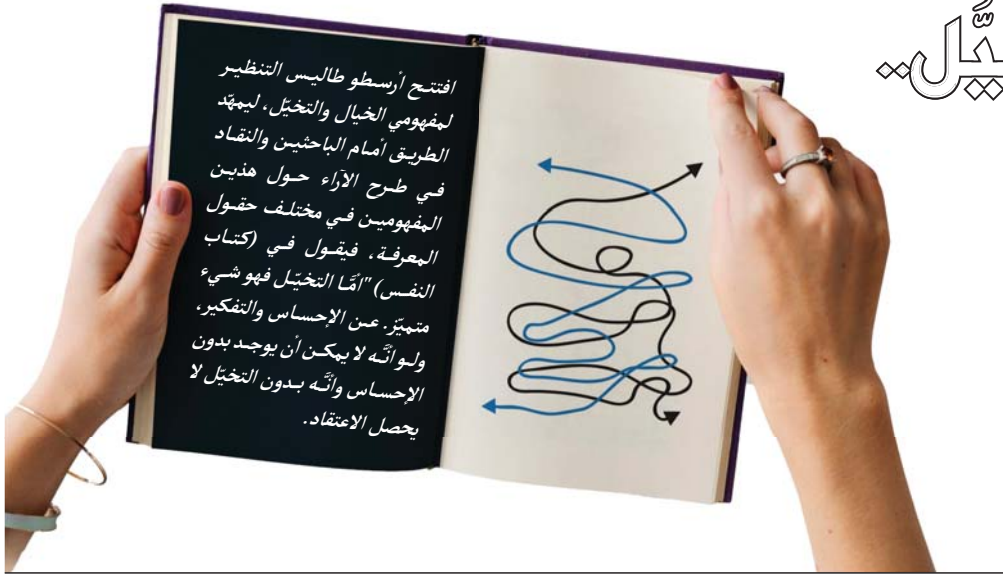 افتتح أرسطو طاليس التنظير
لمفهومي الخيال والتخيّل، ليمهّد
الطريق أمام الباحثين والنقاد
في طرح الآراء حول هذين
المفهومين في مختلف حقول
المعرفة، فيقول في (كتاب
النفس) "أمَّا التخيّل فهو شيء
متميّز. عن الإحساس والتفكير،
ولو أنَّه لا يمكن أن يوجد بدون
الإحساس وأنَّه بدون التخيّل لا
يحصل الاعتقاد.